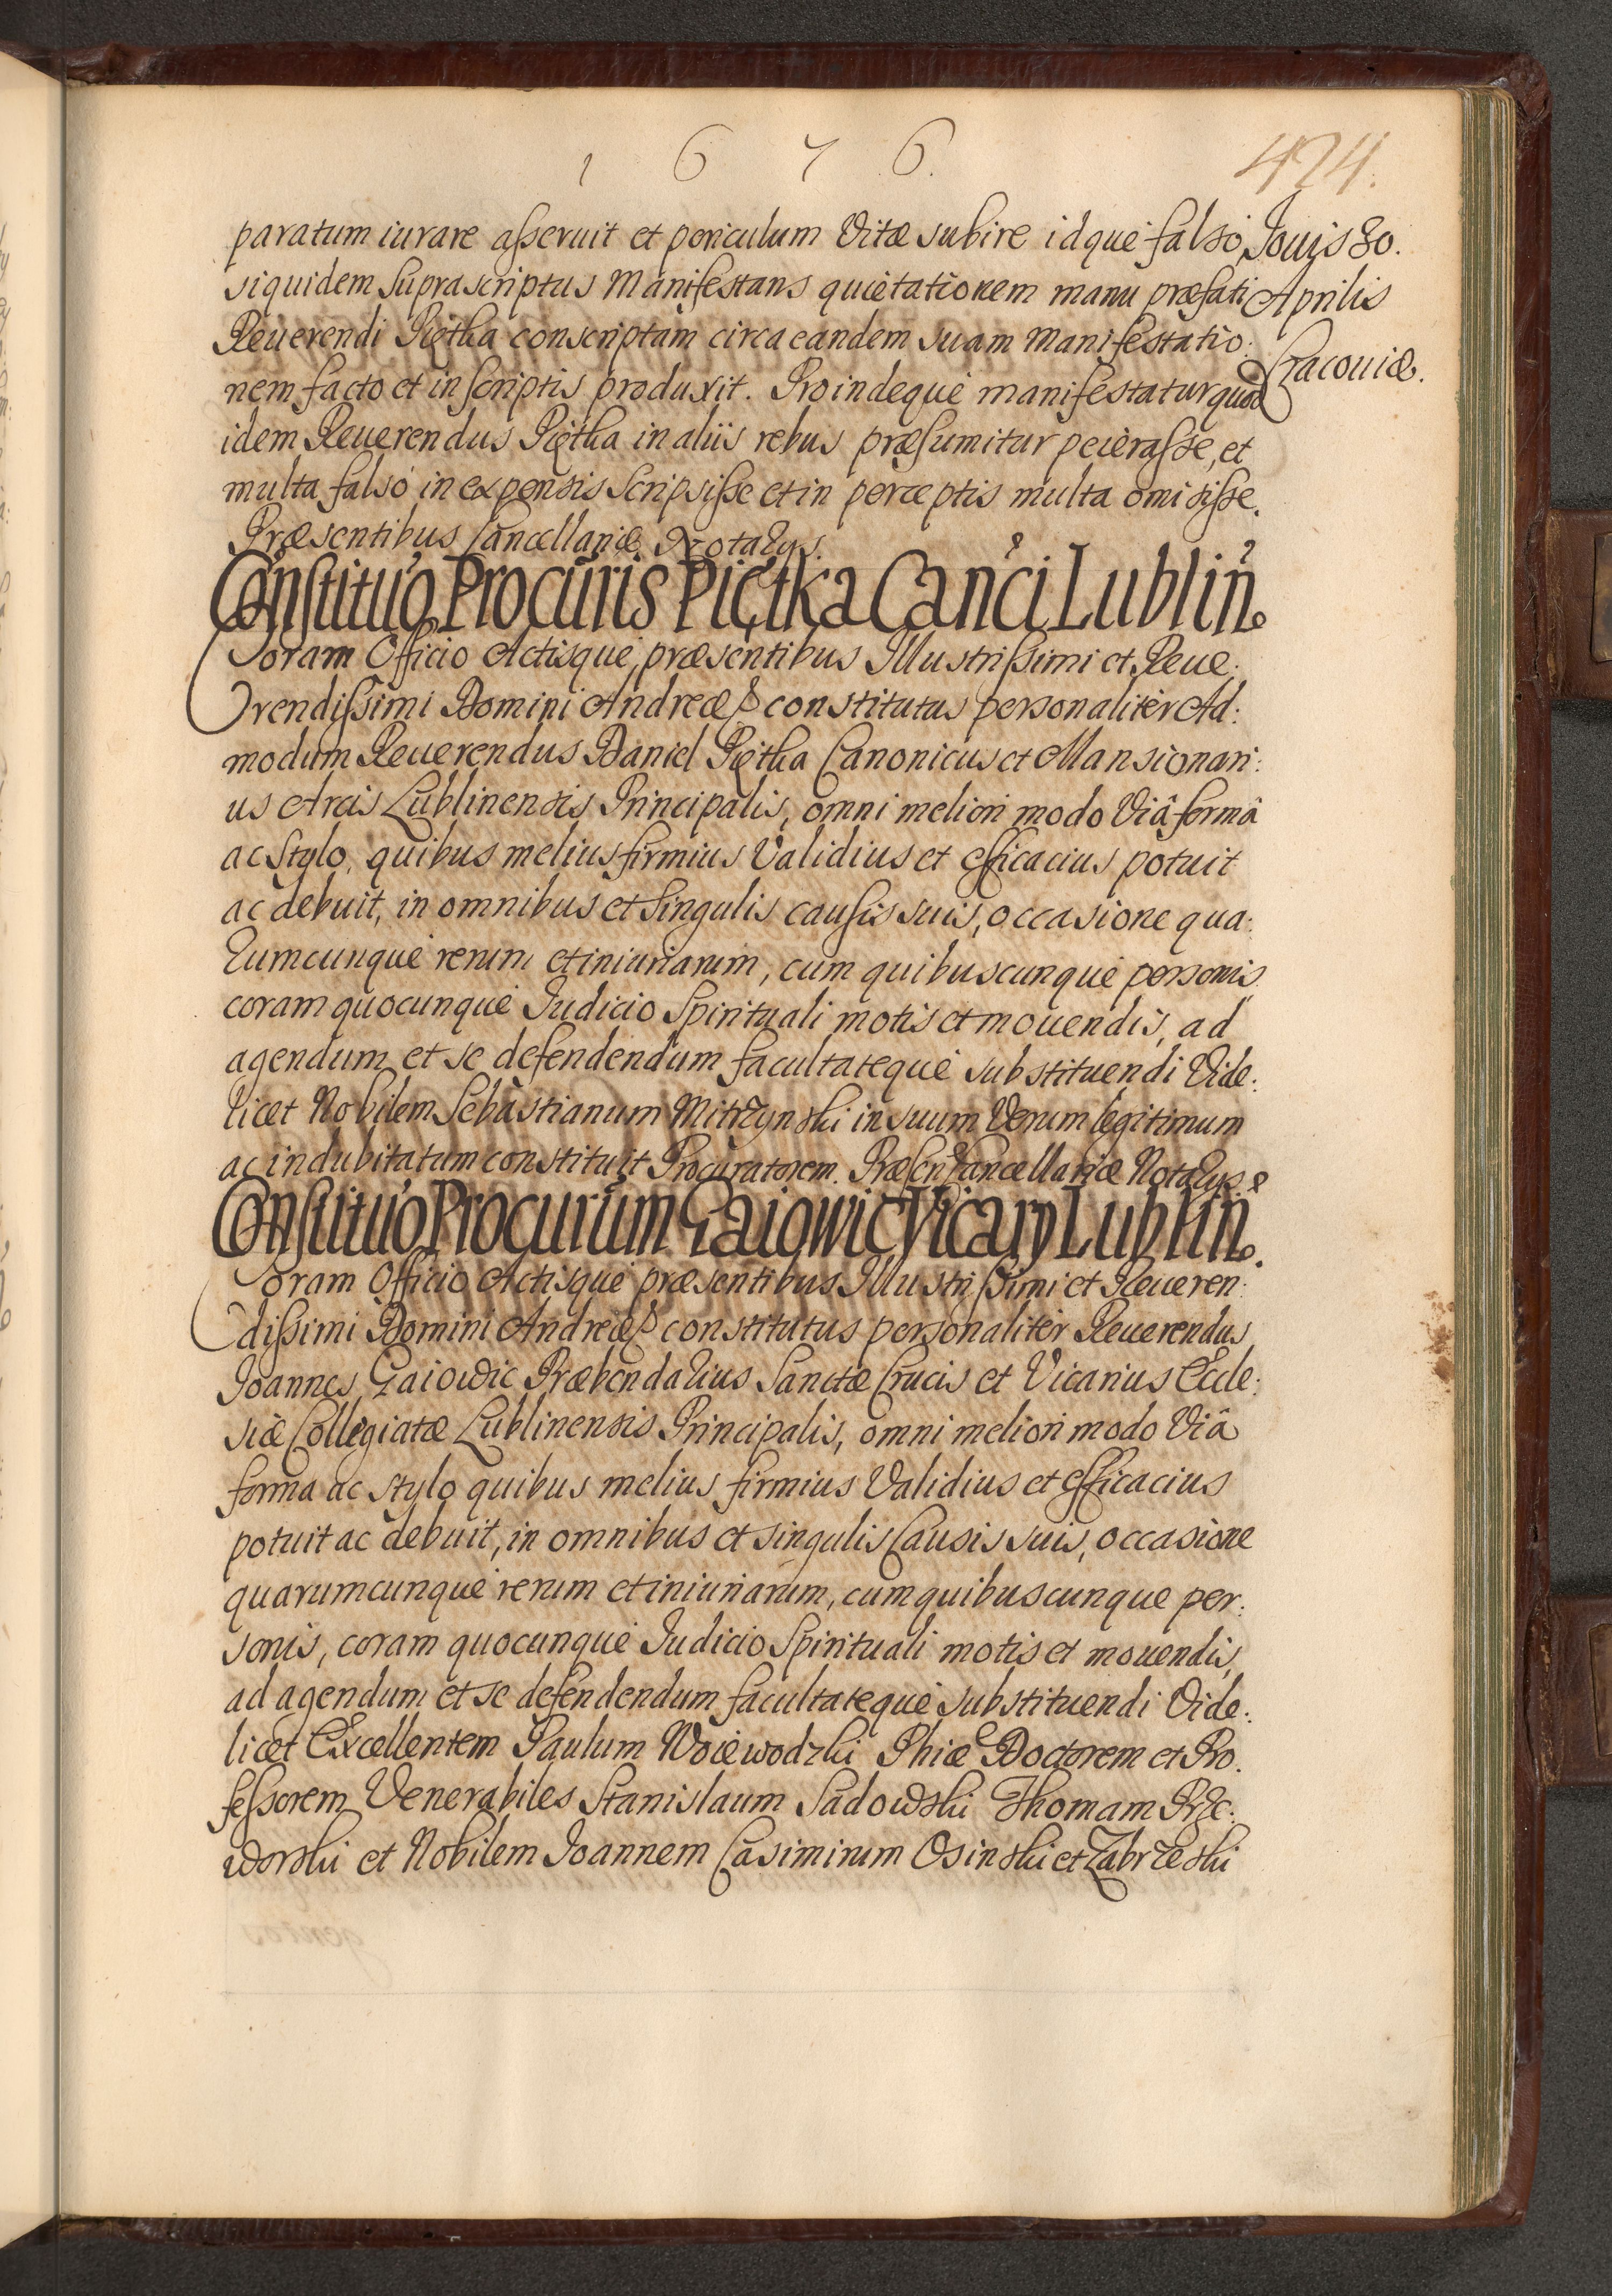 1 6 7 6.
424.
paratum iurare asseruit et periculum Vitæ subire idque falso,
Jouis 30.
siquidem suprascriptus Manifestans quietationem manu præfati
Aprilis
Reuerendi Piętka conscriptam circa eandem suam Manifestatio:
Cracouiæ.
nem facto et in scriptis produxit. Proindeque manifestatur quod
idem Reuerendus Piętka in aliis rebus præsumitur peierasse, et
multa falso in expensis scripsisse et in perceptis multa omisisse.
Præsentibus Cancellariæ Notarys.
Constituo Procuris Piętka Canci Lublin.
Coram Officio Actisque præsentibus Illustrissimi et Reue:
rendissimi Domini Andreæ constitutus personaliter Ad:
modum Reuerendus Daniel Piętka Canonicus et Mansionari:
us Arcis Lublinensis Principalis, omni meliori modo Viâ formâ
ac Stylo, quibus melius firmius Validius et efficacius potuit
ac debuit, in omnibus et singulis causis suis, occasione qua:
rumcunque rerum et iniuriarum, cum quibuscunque personis
coram quocunque Iudicio Spirituali motis et mouendis, ad
agendum et se defendendum facultateque substituendi Vide:
licet Nobilem Sebastianum Mitrzynski in suum Verum legitimum
ac indubitatum constituit Procuratorem. Præsen Cancellariæ Notarys.
Constituo Procurum Gaiowic Vicary Lublin.
Coram Officio Actisque præsentibus Illustrissimi et Reueren:
dissimi Domini Andreæ constitutus personaliter Reuerendus
Joannes Gaiowic Præbendarius Sanctæ Crucis et Vicarius Eccle:
siæ Collegiatæ Lublinensis Principalis, omni meliori modo Viâ
forma ac stylo quibus melius firmius Validius et efficacius
potuit ac debuit, in omnibus et singulis Causis suis, occasione
quarumcunque rerum et iniuriarum, cum quibuscunque per:
sonis, coram quocunque Iudicio Spirituali motis et mouendis,
ad agendum et se defendendum facultateque substituendi Vide:
licet Excellentem Paulum Woiewodzki Phiæ Doctorem et Pro.
fessorem Venerabiles Stanislaum Sadowski Thomam Rze:
worski et Nobilem Joannem Casimirum Osinski et Zabrzeski